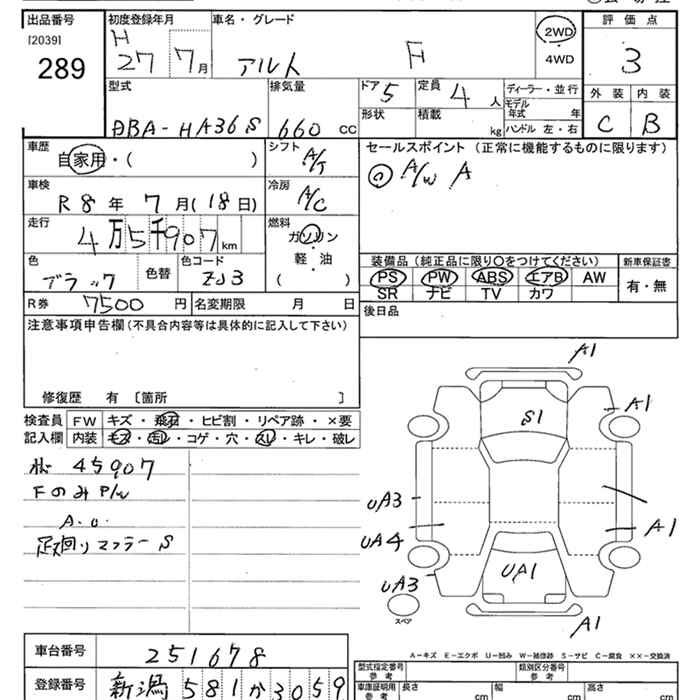 出品番号 初度登録年月 車名・グレード 評価点
[2039] H 2WD
289 27 7月 アルト F 4WD 3
型式 排気量 ドア 5 定員 4 人 ディーラー・並行 外装 内装
形状 積載 kg モデル年式 年
DBA-HA36S 660 cc ハンドル 左・右 C B
車歴 自家用・( ) シフト A/T セールスポイント (正常に機能するものに限ります)
車検 R8年 7月(18日) 冷房 A/C A/W A
走行 4万5千907 km 燃料 ガソリン・軽・油 ( )
装備品 (純正品に限り○をつけてください) 新車保証書
色 ブラック 色替 色コード ZJ3 PS PW ABS エアB AW 有・無
SR ナビ TV カワ
R券 7500 円 名変期限 月 日 後日品
注意事項申告欄 (不具合内容等は具体的に記入して下さい)
修復歴 有 〔箇所 〕
検査員 FW キズ・飛石・ヒビ割・リペア跡・×要
記入欄 内装 キズ・汚レ・コゲ・穴・スレ・キレ・破レ
45907
FのみP/W
A.C
足回りマフラーS
A1
S1
A1
UA3
A1
UA4
UA1
UA3
スペア
A1
A-キズ E-エクボ U-凹み W-補修跡 S-サビ C-腐食 XX-交換済
車台番号 251678
型式指定番号 参考 類別区分番号 参考
登録番号 新潟 581 か 3059
車庫証明用 参考 長さ cm 幅 cm 高さ cm